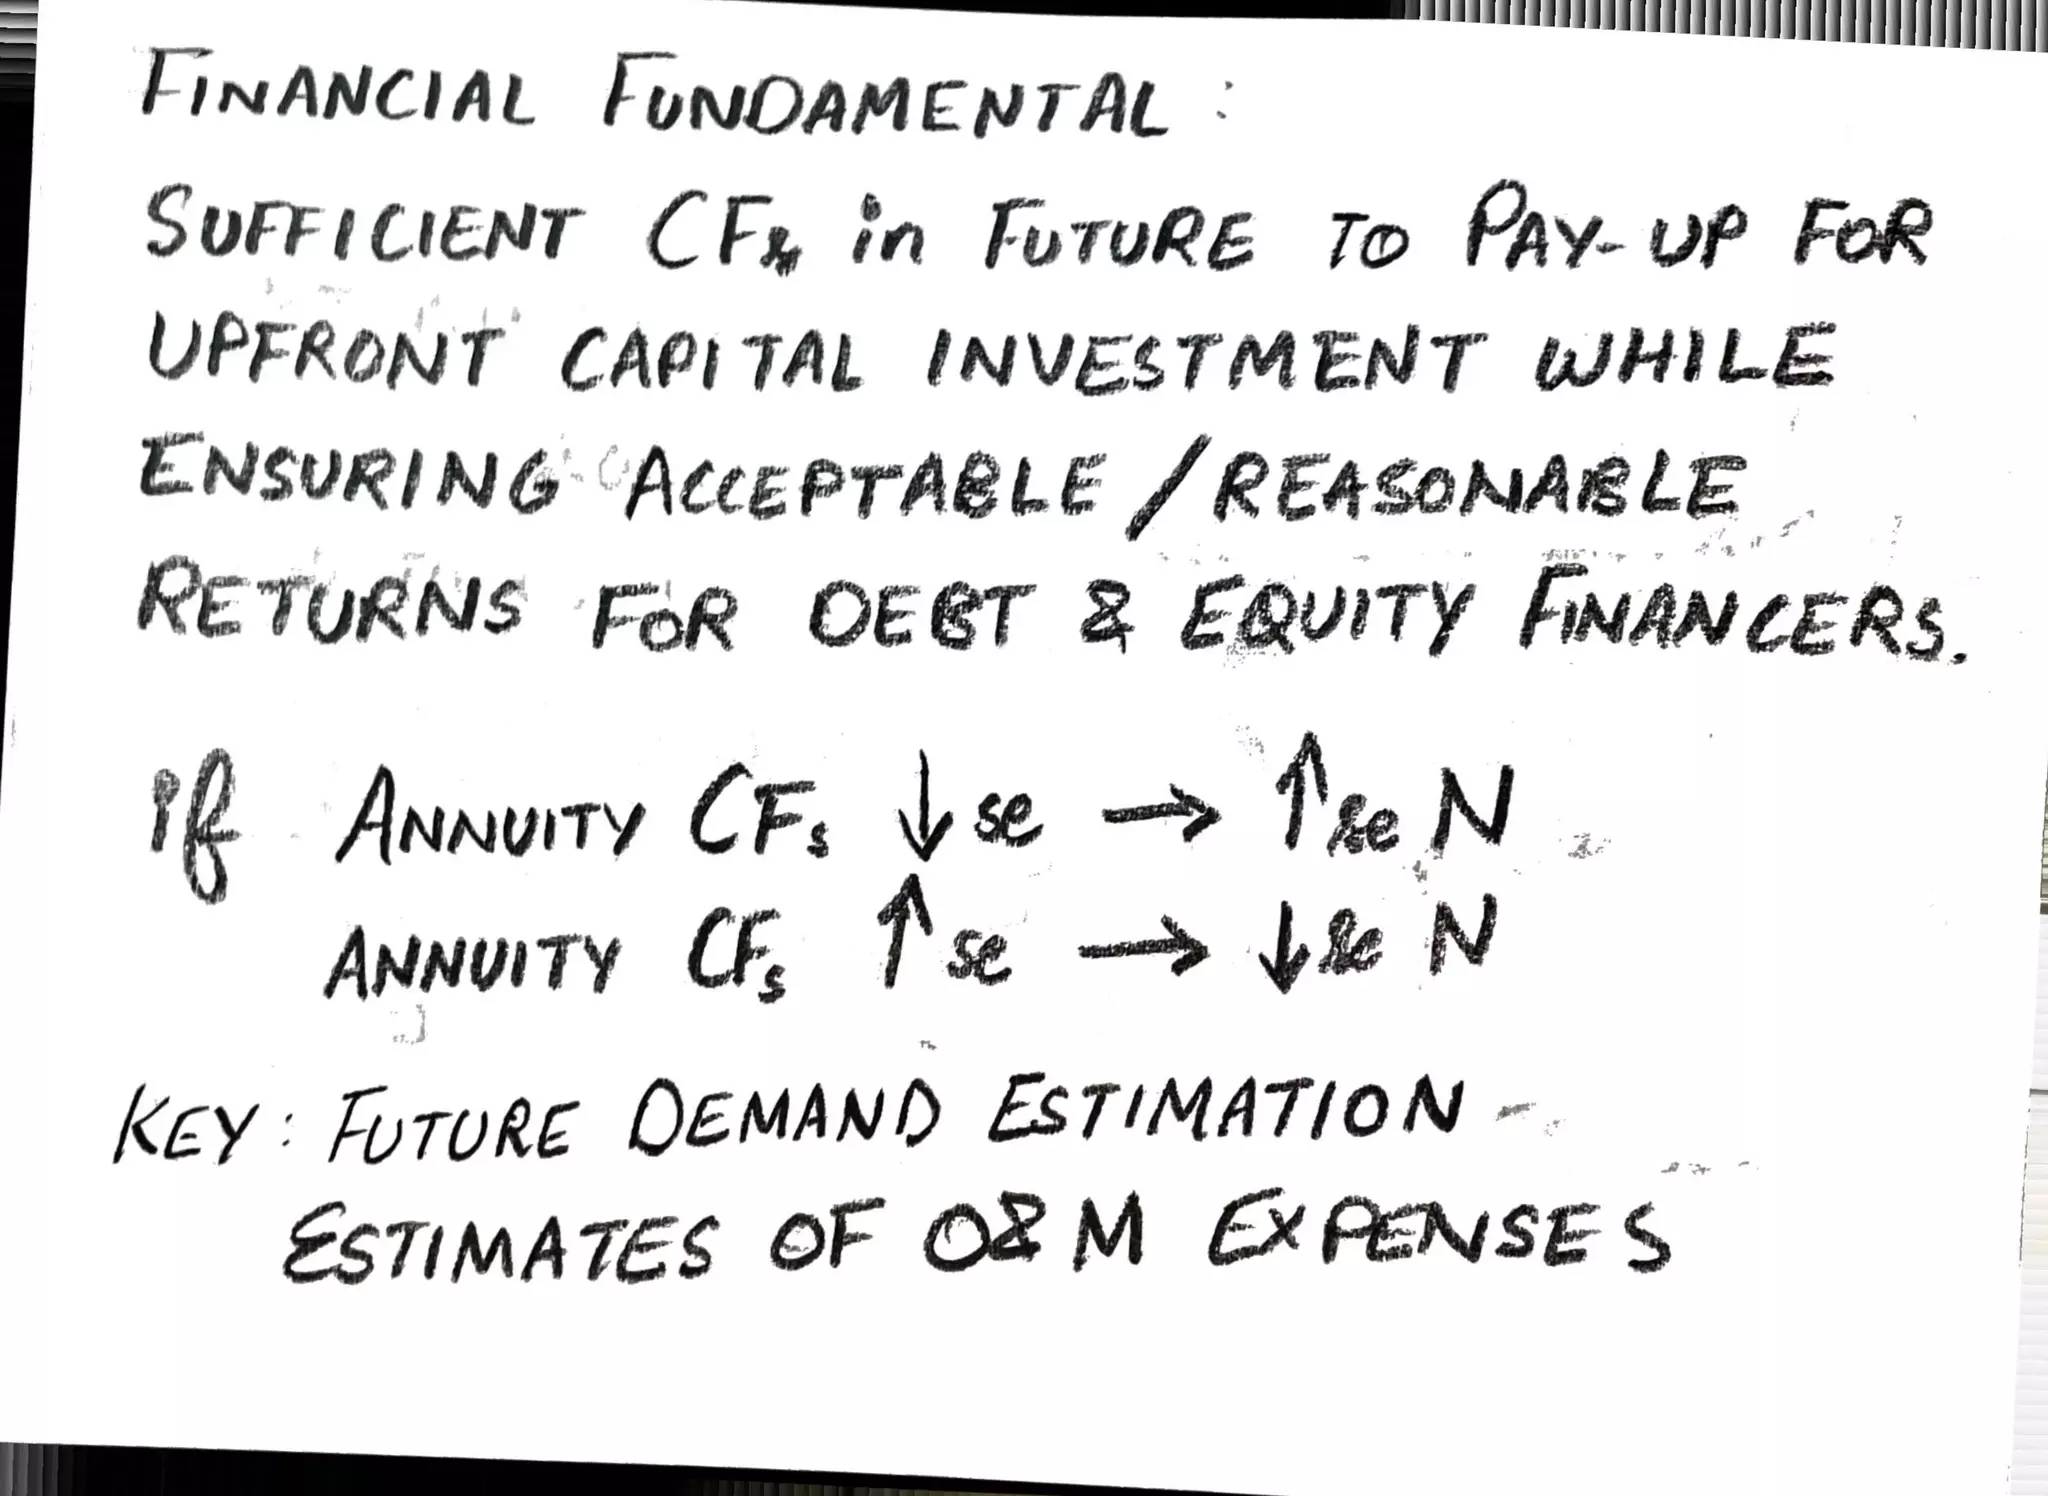 FINANCIAL FUNDAMENTAL :
SUFFICIENT CFs in FUTURE TO PAY-UP FOR
UPFRONT CAPITAL INVESTMENT WHILE
ENSURING ACCEPTABLE / REASONABLE
RETURNS FOR DEBT & EQUITY FINANCERS.
if ANNUITY CFs ↓se → ↑se N
ANNUITY CFs ↑se → ↓se N
KEY : FUTURE DEMAND ESTIMATION
ESTIMATES OF O&M EXPENSES